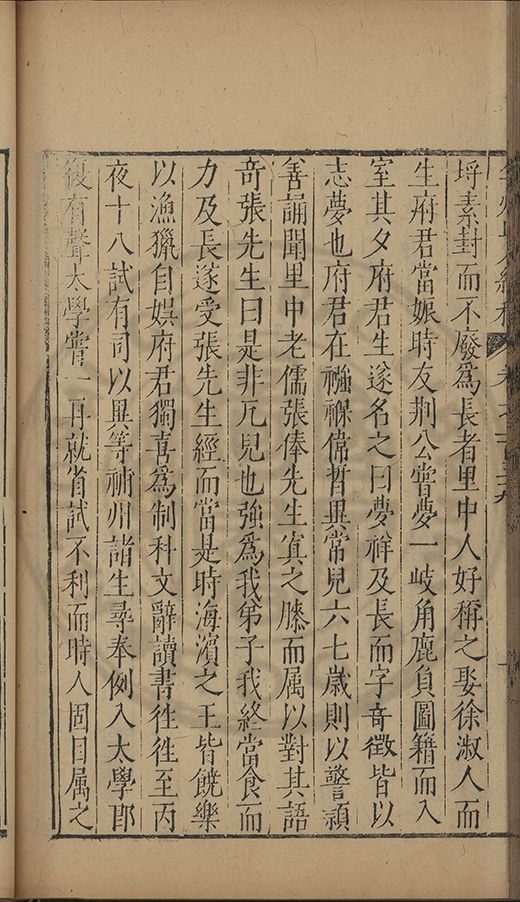 弇州山人續稿 卷之一百三十九
埒素封而不廢爲長者里中人好稱之娶徐淑人而
生府君當娠時友荆公嘗夢一岐角鹿負圖籍而入
室其夕府君生遂名之曰夢祥及長而字奇徵皆以
志夢也府君在襁褓偉晢異常兒六七歲則以警穎
善誦聞里中老儒張俸先生寘之膝而属以對其語
奇張先生曰是非凡兒也強爲我弟子我終當食而
力及長遂受張先生經而當是時海濱之王皆饒樂
以漁獵自娯府君獨喜爲制科文辭讀書徃徃至丙
夜十八試有司以異等補州諸生尋奉例入太學郡
復有聲太學嘗一再就省試不利而時人固目属之